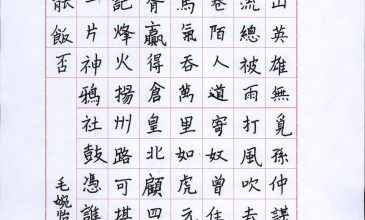 山英雄無覓孫仲謀
流總被雨打風吹去
巷陌人道寄奴曾住
馬氣吞萬里如虎元
胥贏得倉皇北顧四
記烽火揚州路可堪
一片神鴉社鼓憑誰
能飯否
毛婉怡